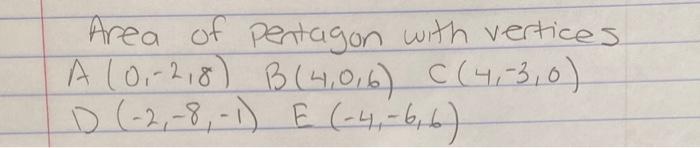 Area of pentagon with vertices
A (0,-2,8) B(4,0,6) C(4,-3,0)
D (-2,-8,-1) E (-4,-6,6)